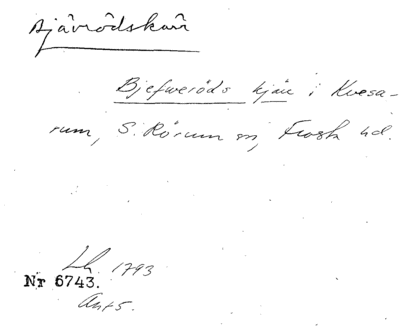 Bjävrödskärr
Bjefweröds kjär i Kvesa-
rum, S. Rörum sn, Frosta hd.
Lh 1793
Nr 6743.
Ant 5.